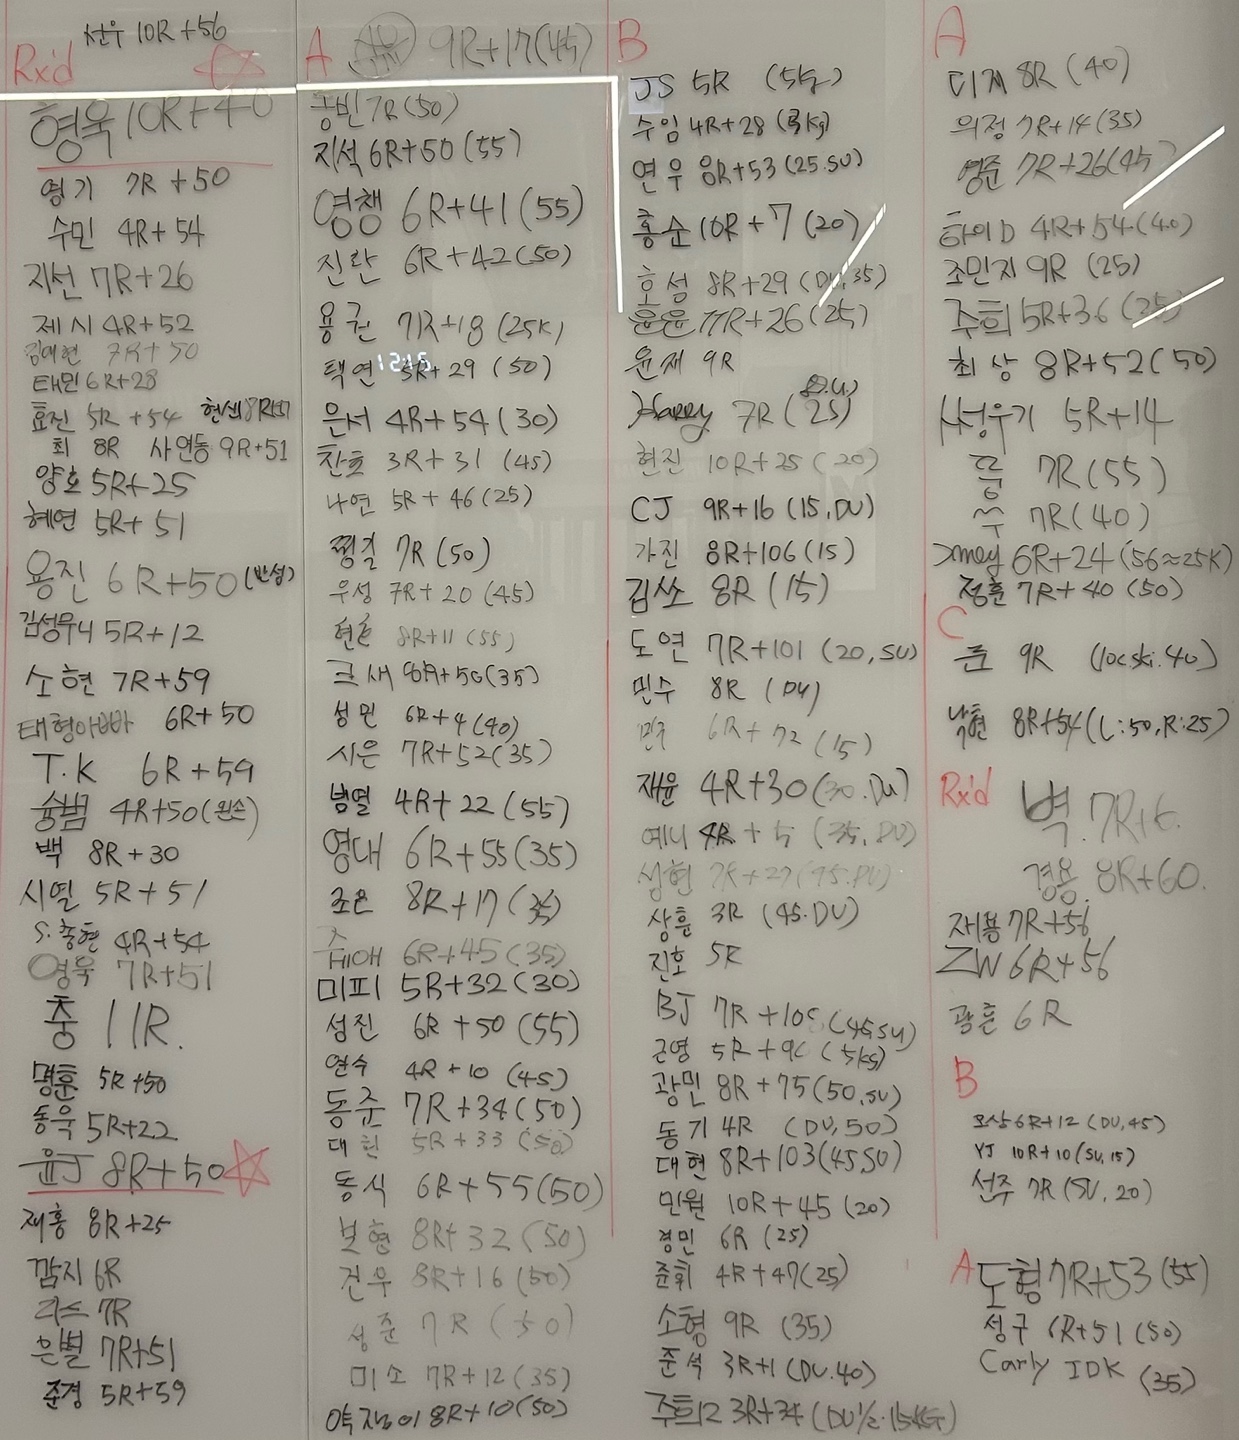 선우 10R+56
Rx'd
형욱 10R+40
영기 7R+50
수민 4R+54
지선 7R+26
제시 4R+52
김예현 7R+50
태민 6R+28
효진 5R+54
최 8R 사연동 9R+51
양호 5R+25
혜연 5R+51
용진 6R+50 (반성)
김성우니 5R+12
소현 7R+59
태형아빠 6R+50
T.K 6R+59
슝범 4R+50 (왼손)
백 8R+30
시열 5R+51
S.충현 4R+54
영욱 7R+51
충 11R.
명훈 5R+50
동욱 5R+22
윤J 8R+50
재홍 8R+25
깜지 6R
리스 7R
은별 7R+51
준경 5R+59
A 9R+17(45)
동빈 7R(50)
지석 6R+50(55)
영챙 6R+41(55)
진란 6R+42(50)
용권 7R+18(25K)
택연 5R+29 (50)
은서 4R+54(30)
찬호 3R+31 (45)
나연 5R+46(25)
찡길 7R(50)
우성 7R+20 (45)
현호 8R+11 (55)
크새 8R+50(35)
성민 6R+4(40)
시은 7R+52(35)
범열 4R+22 (55)
영대 6R+55(35)
조은 8R+17(35)
6R+45(35)
미피 5R+32(30)
성진 6R+50(55)
연수 4R+10 (45)
동준 7R+34(50)
대현 5R+33 (50)
동식 6R+55(50)
보형 8R+32 (50)
건우 8R+16(50)
성준 7R (50)
미소 7R+12(35)
약쟁이 8R+10(50)
B
JS 5R (5kg)
수임 4R+28 (3kg)
연우 8R+53(25.SU)
홍순 10R+7 (20)
호성 8R+29 (DU,35)
윤윤 7R+26(25)
윤재 9R
Harry 7R(25)
현진 10R+25(20)
CJ 9R+16 (15,DU)
가진 8R+106(15)
김쏘 8R(15)
도연 7R+101 (20,SU)
민수 8R (DU)
민주 6R+72 (15)
재윤 4R+30(30.DU)
예니 4R+5 (35,DU)
성현
상훈 3R (45.DU)
진호 5R
BJ 7R+105(45,SU)
근영 5R+90 (5kg)
광민 8R+75(50,SU)
동기 4R (DU,50)
대현 8R+103(45,SU)
민원 10R+45 (20)
경민 6R (25)
준휘 4R+47(25)
소형 9R (35)
준석 3R+1 (DU.40)
주희2 3R+34
A
디제 8R (40)
의정 7R+14(35)
영준 7R+26(45)
하이D 4R+54(40)
조민지 9R (25)
주희 5R+36 (25)
최상 8R+52(50)
써성우기 5R+14
뜽 7R(55)
쑤 7R(40)
6R+24(56≈25K)
정훈 7R+40 (50)
C
준 9R (10c ski.40)
낙현 8R+54(L:50,R:25)
Rx'd
벽. 7R+6.
경용 8R+60.
재용 7R+56
ZW 6R+56
광훈 6R
B
모상 6R+12 (DU,45)
YJ 10R+10 (SU,15)
선주 7R (SU, 20)
A
도형 7R+53(55)
성구 6R+51 (50)
Carly IDK (35)